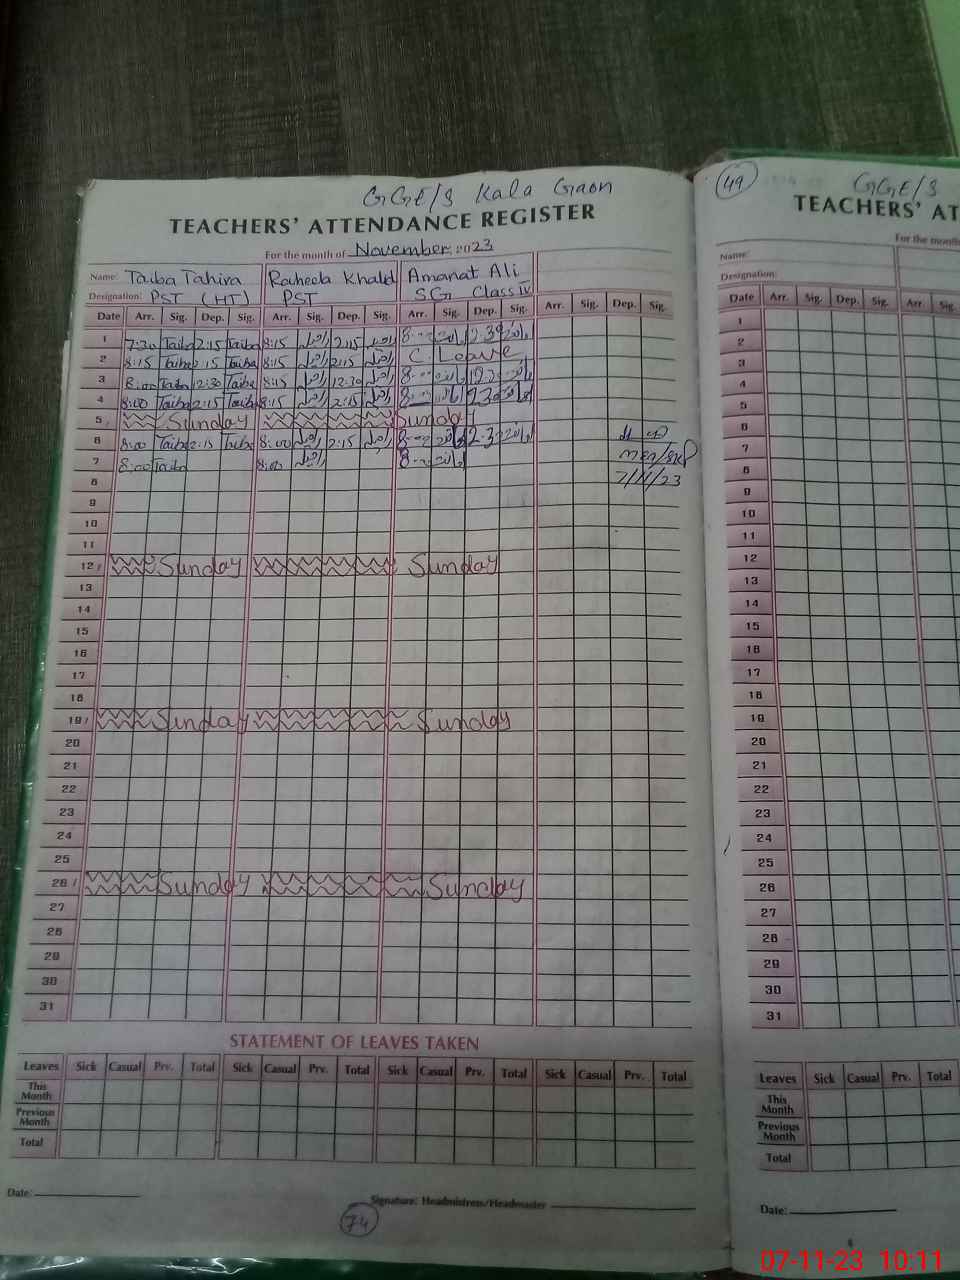 GGE/S Kala Gaon
TEACHERS' ATTENDANCE REGISTER
For the month of November 2023
Name: Taiba Tahira Raheela Khalid Amanat Ali
Designation: PST (HT) PST S.G Class IV
Date Arr. Sig. Dep. Sig. Arr. Sig. Dep. Sig. Arr. Sig. Dep. Sig. Arr. Sig. Dep. Sig.
1 7:30 Taiba 2:15 Taiba 8:15 راحیلہ 2:15 راحیلہ 8:00 امانت 2:30 امانت
2 8:15 Taiba 2:15 Taiba 8:15 راحیلہ 2:15 راحیلہ C. Leave
3 8:00 Taiba 12:30 Taiba 8:15 راحیلہ 12:30 راحیلہ 8:00 امانت 12:30 امانت
4 8:00 Taiba 2:15 Taiba 8:15 راحیلہ 2:15 راحیلہ 8:00 امانت 2:30 امانت
5 Sunday Sunday
6 8:00 Taiba 2:15 Taiba 8:00 راحیلہ 2:15 راحیلہ 8:00 امانت 2:30 امانت
7 8:00 Taiba 8:00 راحیلہ 8:00 امانت
7/11/23
8
9
10
11
12 Sunday Sunday
13
14
15
16
17
18
19 Sunday Sunday
20
21
22
23
24
25
26 Sunday Sunday
27
28
29
30
31
STATEMENT OF LEAVES TAKEN
Leaves Sick Casual Prv. Total Sick Casual Prv. Total Sick Casual Prv. Total Sick Casual Prv. Total
This
Month
Previous
Month
Total
Date:
Signature: Headmistress/Headmaster
74
49
GGE/S
TEACHERS' AT
For the month
Name:
Designation:
Date Arr. Sig. Dep. Sig. Arr. Sig.
1
2
3
4
5
6
7
8
9
10
11
12
13
14
15
16
17
18
19
20
21
22
23
24
25
26
27
28
29
30
31
Leaves Sick Casual Prv. Total
This
Month
Previous
Month
Total
Date:
07-11-23 10:11